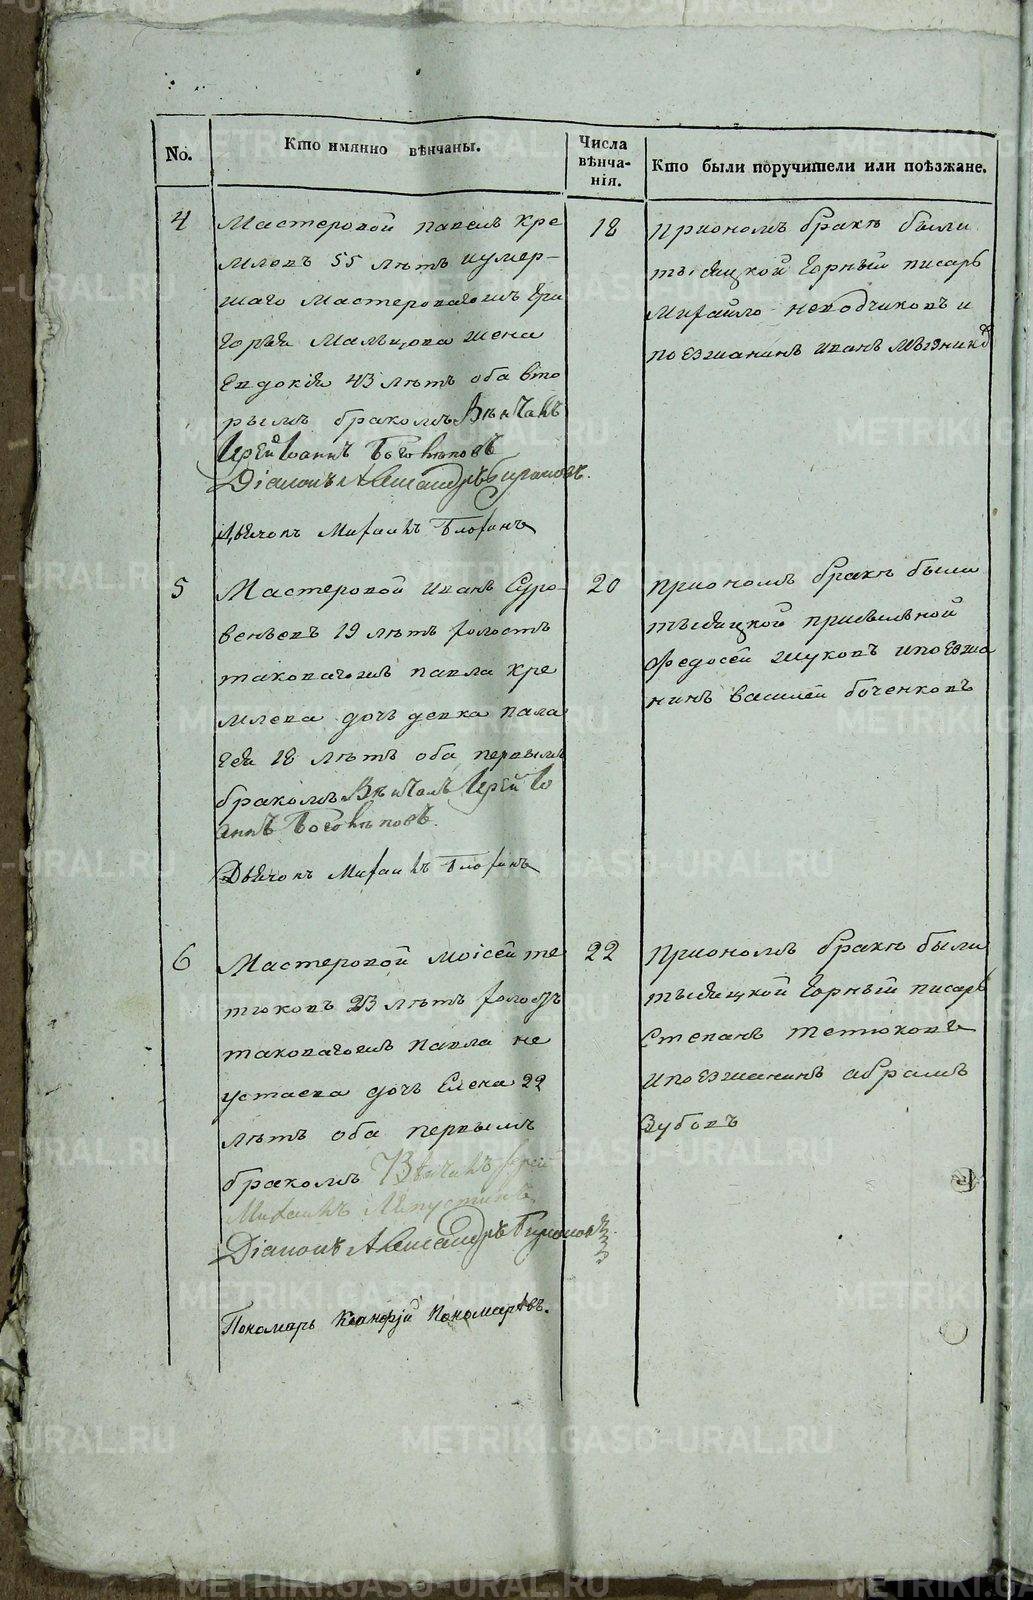 No.
Кто имянно вѣнчаны.
Числа
вѣнча-
нія.
Кто были поручители или поѣзжане.
4
Мастеровой павелъ кре
млевъ 55 лѣтъ иумер-
шаго мастероваго гри
горья Мальцова жена
Евдокія 43 лѣтъ оба вто
рымъ бракомъ Вѣнчалъ
Іерей Іоаннъ Боголѣповъ
Діаконъ Александръ
Дьячокъ Михаилъ
18
приономъ бракѣ были
тысяцкой горный писарь
михайло неводчиковъ и
поезжанинъ иванъ
5
Мастеровой иванъ Суро
веневъ 19 лѣтъ холостъ
таковагожъ павла кре
млева дочь девка пала
гея 18 лѣтъ оба первымъ
бракомъ Вѣнчалъ Іерей Іо
аннъ Боголѣповъ
Дьячокъ Михаилъ
20
приономъ бракѣ были
тысяцкой
федосей жуковъ ипоезжа
нинъ василей боченковъ
6
Мастеровой моисей те
тюковъ 23 лѣтъ холостъ
таковагожъ павла не
устаева дочь Елена 22
лѣтъ оба первымъ
бракомъ Вѣнчалъ Іерей
Михаилъ
Діаконъ Александръ
Пономарь Ксанфій Пономаревъ.
22
Приономъ бракѣ были
тысяцкой горный писарь
Степанъ тетюковъ
ипоезжанинъ абрамъ
Зубовъ
METRIKI.GASO-URAL.RU